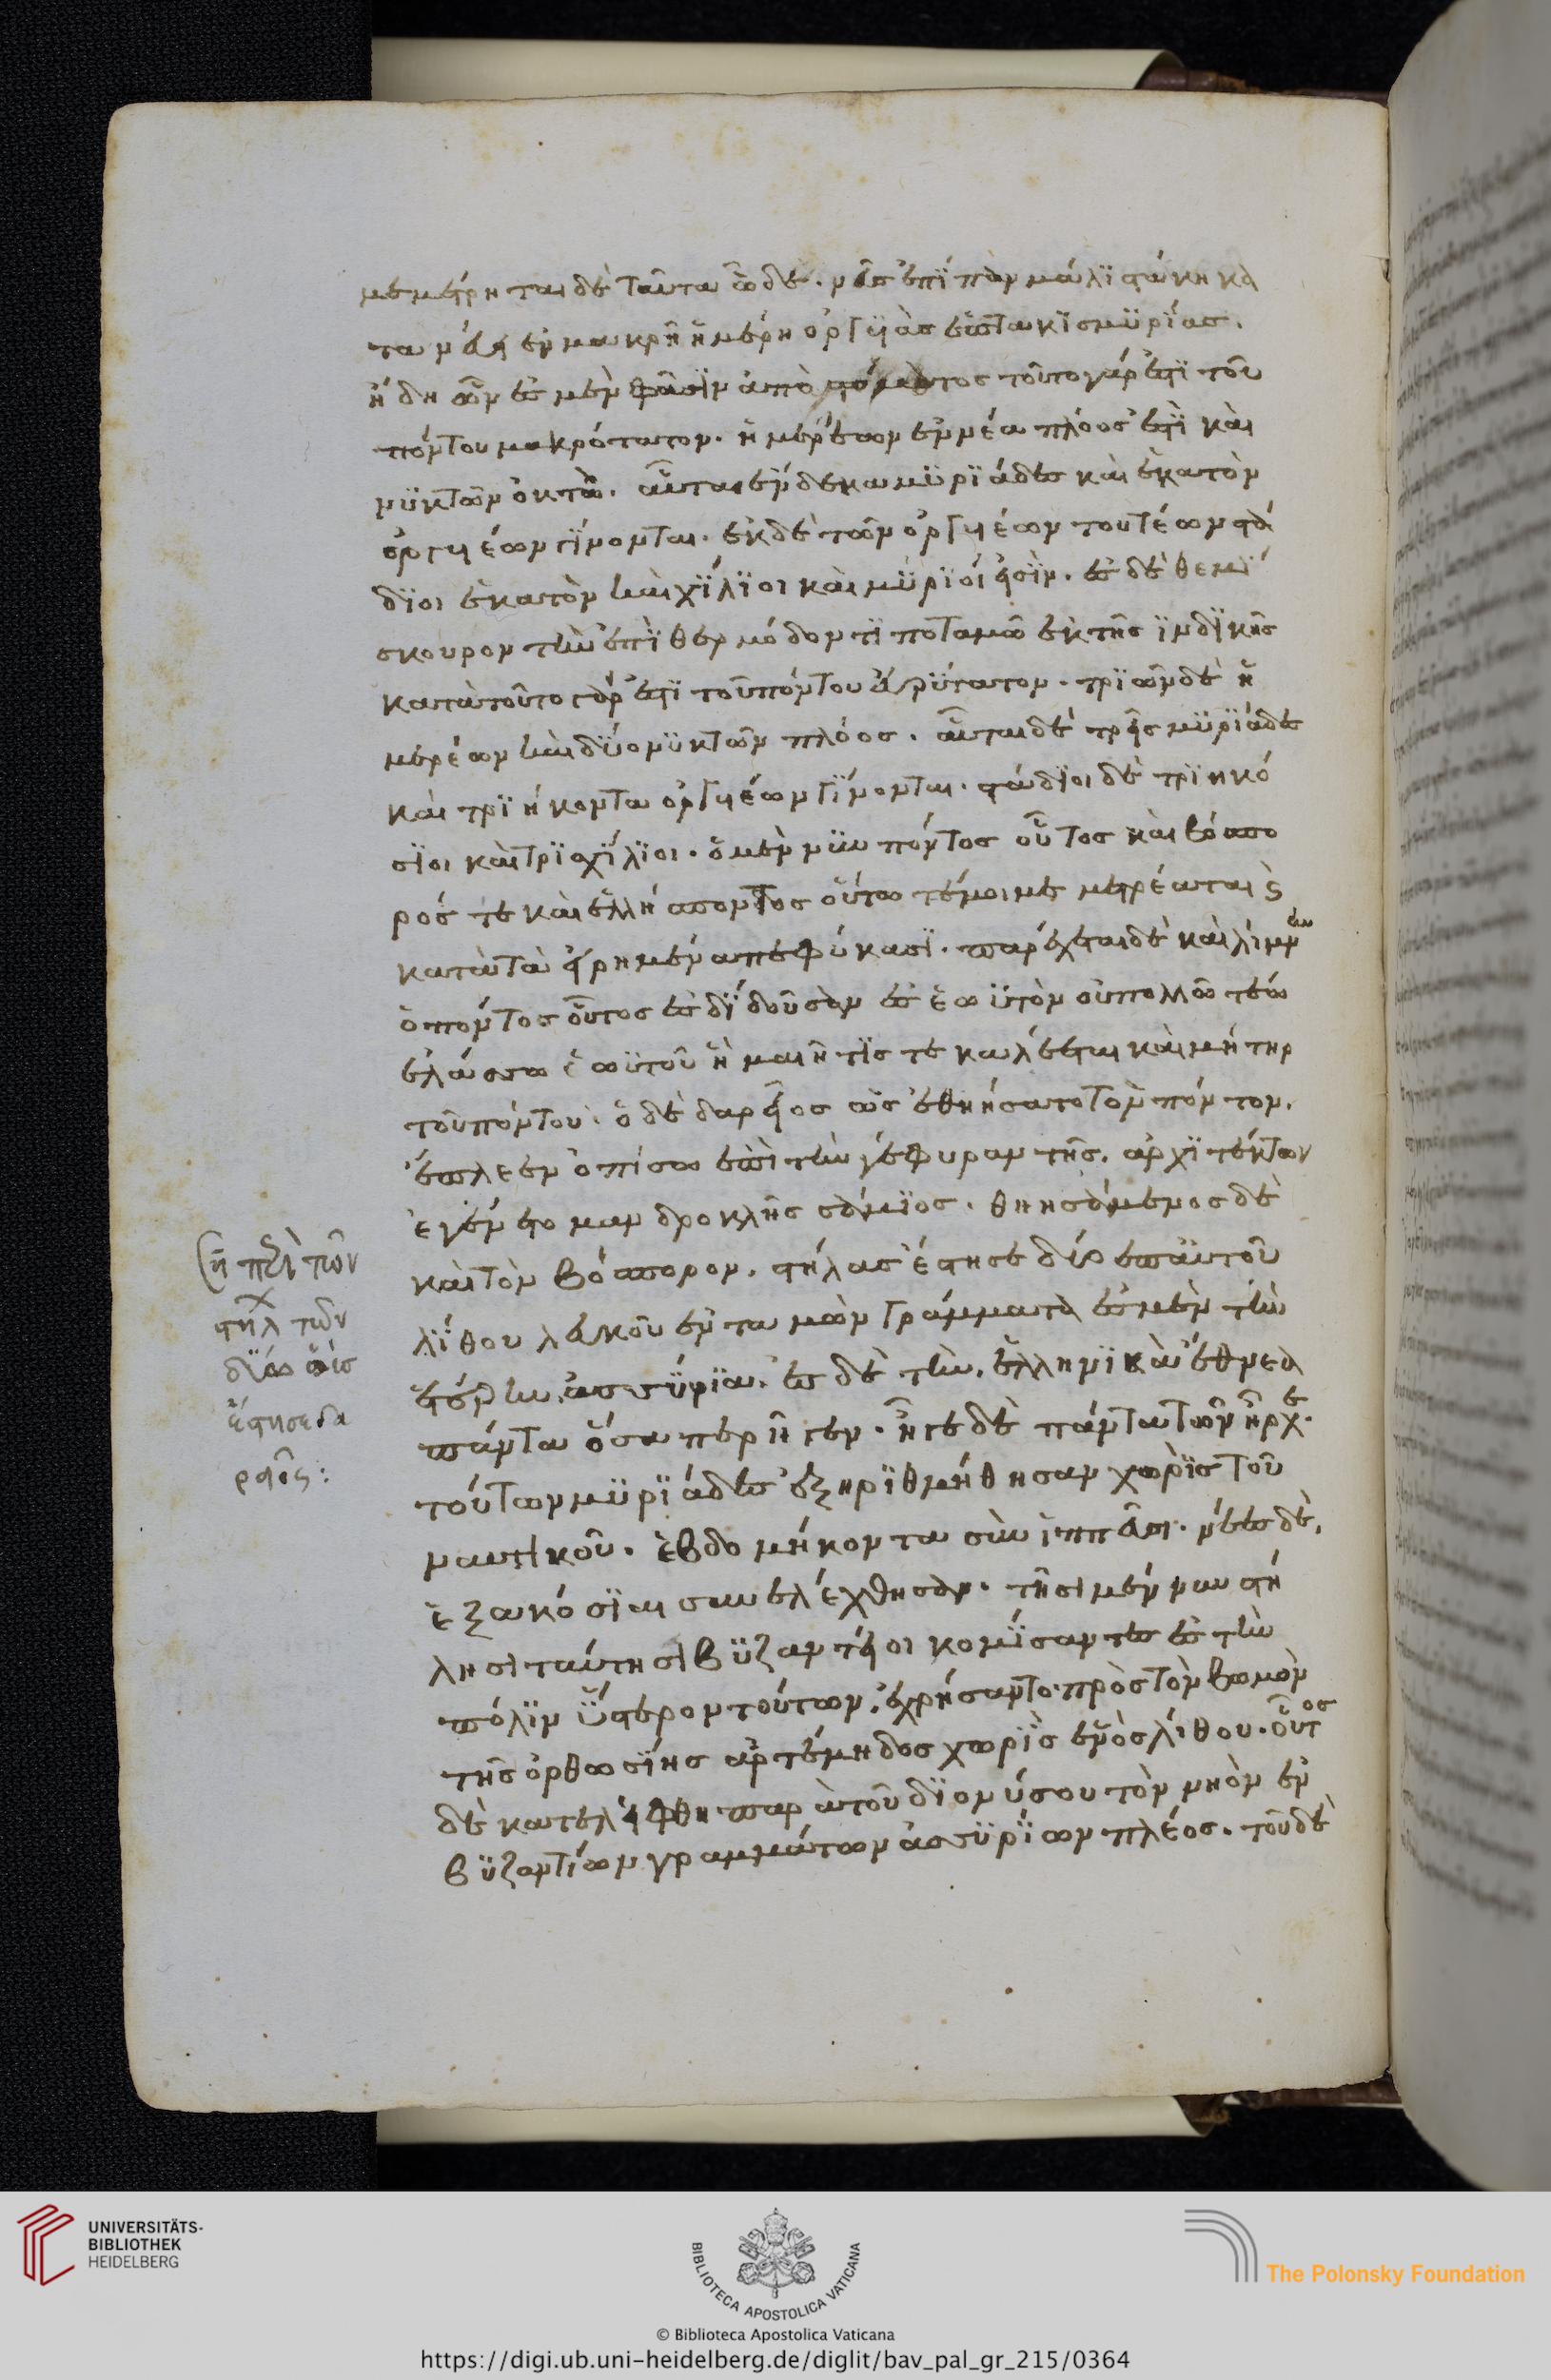 μεμέτρηται δὲ ταῦτα ὧδε. νηῦς ἐπίπαν μάλιστά κη κα
τανύει ἐν μακρηημέρη ὀργυιὰς ἑπτακισμυρίας.
ἤδη ὦν ἐς μὲν φᾶσιν ἀπὸ στόματος τοῦτο γάρ ἐστι τοῦ
πόντου μακρότατον. ἡμερέων ἐννέα πλόος ἐστὶ καὶ
νυκτῶν ὀκτώ. αὗται ἕνδεκα μυριάδες καὶ ἑκατὸν
ὀργυιέων γίνονται. ἐκ δὲ τῶν ὀργυιέων τουτέων στά
διοι ἑκατὸν καὶ χίλιοι καὶ μύριοί εἰσιν. ἐς δὲ θεμί
σκουρον τὴν ἐπὶ θερμόδοντι ποταμῶ ἐκ τῆς ϊνδικῆς
κατὰ τοῦτο γάρ ἐστι τοῦ πόντου εὐρύτατον. τριῶν δὲ ἡ
μερέων καὶ δύο νυκτῶν πλόος. αὗται δὲ τρεῖς μυριάδες
καὶ τριήκοντα ὀργυιέων γίνονται. στάδιοι δὲ τριηκό
σιοι καὶ τρισχίλιοι. ὁ μέν νυν πόντος οὗτος καὶ βόσπο
ρός τε καὶ ἑλλήσποντος οὕτω τέ μοι μεμετρέαται καὶ
κατὰ τὰ εἰρημένα πεφύκασι. παρέχεται δὲ καὶ λίμνην
ὁ πόντος οὗτος ἐσδιδοῦσαν ἐς ἑωϋτὸν οὐ πολλῶ τέω
ἐλάσσω ἑωϋτοῦ ἣ μαιῆτίς τε καλέεται καὶ μήτηρ
τοῦ πόντου. ὁ δὲ δαρεῖος ὡς ἐθηήσατο τὸν πόντον.
ἔπλεεν ὀπίσω ἐπὶ τὴν γέφυραν τῆς. ἀρχιτέκτων
ἐγένετο μανδροκλῆς σάμιος. θηησάμενος δὲ
καὶ τὸν βόσπορον. στήλας ἔστησε δύο ἐπ' αὐτοῦ
λίθου λευκοῦ ἐνταμὼν γράμματα ἐς μὲν τὴν
ἑτέρην ἀσσύρια. ἐς δὲ τὴν. ἑλληνικὰ ἔθνεα
πάντα ὅσα περ ἦγεν. ἦγε δὲ πάντα τῶν ἦρχε.
τούτων μυριάδες ἐξηριθμήθησαν χωρὶς τοῦ
ναυτικοῦ. ἑβδομήκοντα σὺν ἱππεῦσι. νέες δὲ.
ἑξακόσιαι συνελέχθησαν. τῆσι μέν νυν στή
λησι ταύτησι βυζαντίοι κομίσαντες ἐς τὴν
πόλιν ὕστερον τούτων. ἐχρήσαντο πρὸς τὸν βωμὸν
τῆς ὀρθωσίης ἀρτέμηδος χωρὶς ἑνὸς λίθου. οὗτος
δὲ κατελείφθη παρὰ τοῦ διονύσου τὸν νηὸν ἐν
βυζαντίων γραμμάτων ἀσσυρίων πλέος. τοῦ δὲ
ἢ περὶ τῶν
στηλ τῶν
δύο
ἔστησε δα
ρεῖος:
UNIVERSITÄTS-
BIBLIOTHEK
HEIDELBERG
BIBLIOTECA APOSTOLICA VATICANA
The Polonsky Foundation
© Biblioteca Apostolica Vaticana
https://digi.ub.uni-heidelberg.de/diglit/bav_pal_gr_215/0364